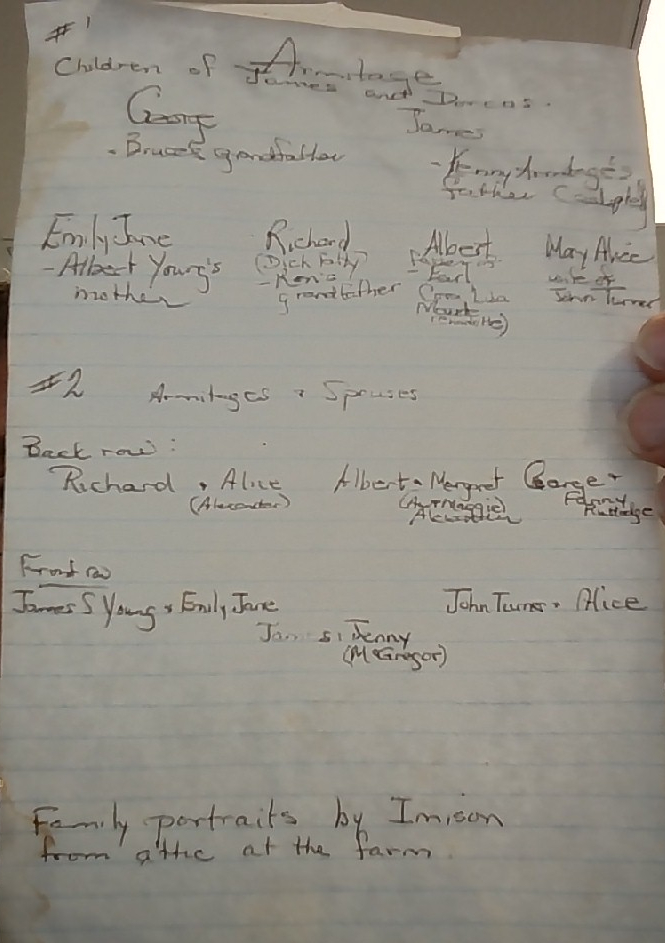 #1
Armitage
Children of James and Dorcas.
George James
- Bruce's grandfather
- Kenny Armitage's
father
Emily Jane Richard Albert May Alice
- Albert Young's (Dick Patty) wife of
mother - Ron's - Earl John Turner
grandfather
#2 Armitages + Spouses
Back row:
Richard + Alice Albert + Margret George +
(Alexander) (Aunt Maggie) Fanny
Rutledge
Front row
James S Young + Emily Jane John Turner + Alice
James + Jenny
(McGregor)
Family portraits by Imison
from attic at the farm.